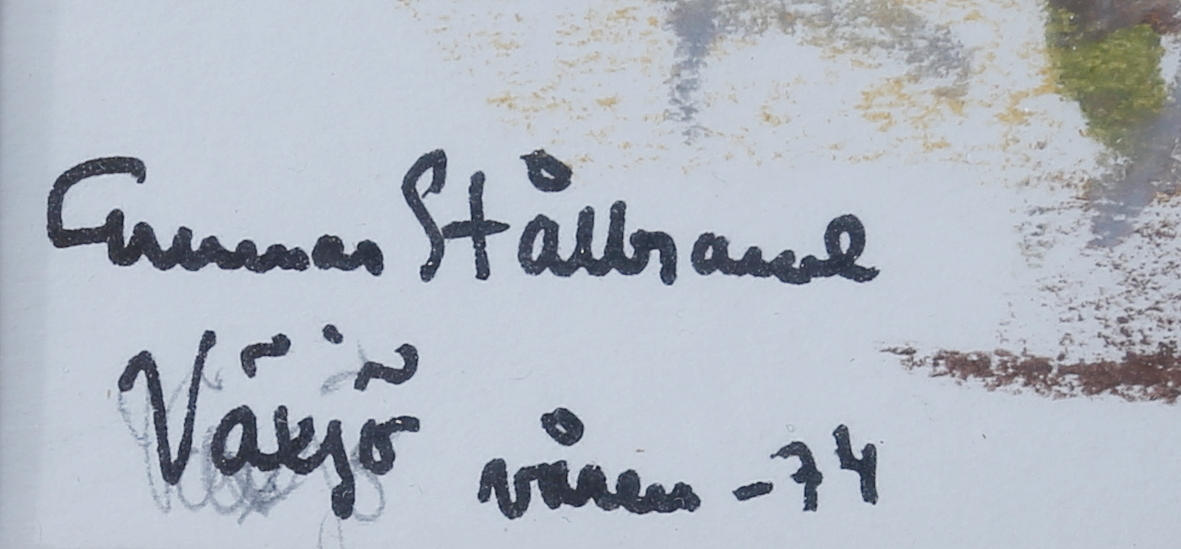 Gunnar Stålbrand
Växjö våren -74